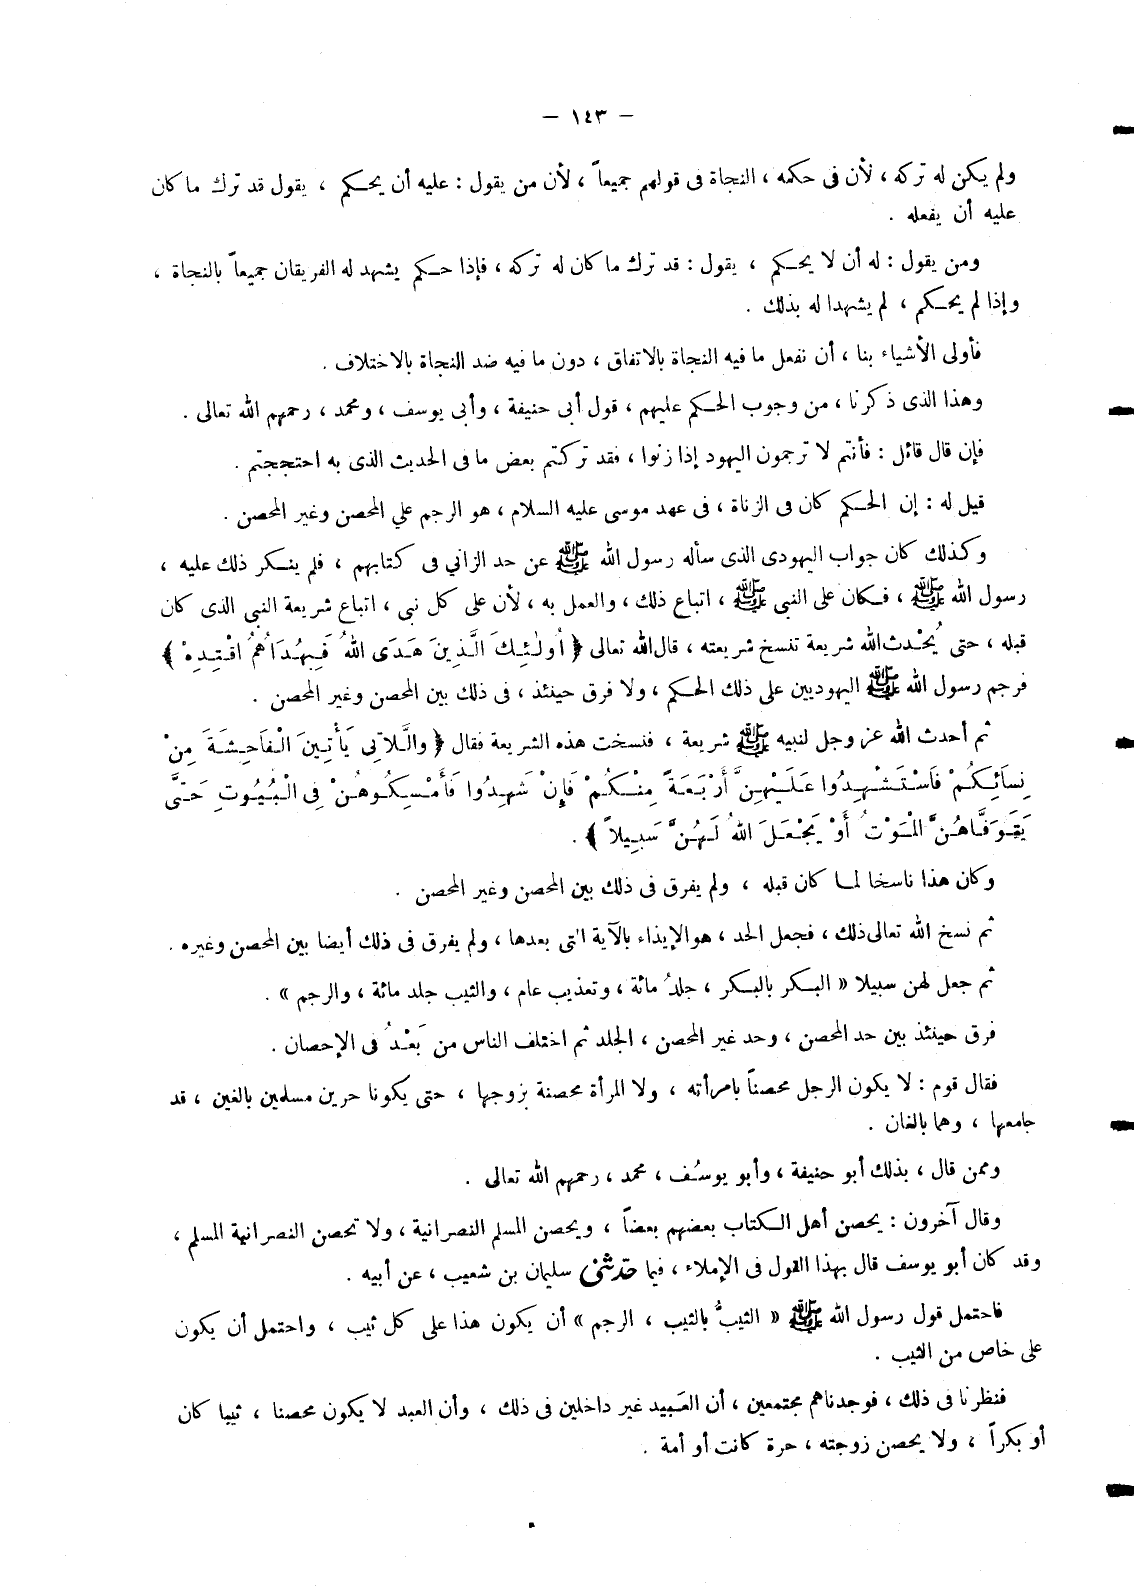 — ١٤٣ —
ولم يكن له تركه ، لأن فى حكمه ، النجاة فى قولهم جميعاً ، لأن من يقول : عليه أن يحكم ، يقول قد ترك ما كان
عليه أن يفعله .
ومن يقول : له أن لا يحكم ، يقول : قد ترك ما كان له تركه ، فإذا حكم يشهد له الفريقان جميعاً بالنجاة ،
وإذا لم يحكم ، لم يشهدا له بذلك .
فأولى الأشياء بنا ، أن نفعل ما فيه النجاة بالاتفاق ، دون ما فيه ضد النجاة بالاختلاف .
وهذا الذى ذكرنا ، من وجوب الحكم عليهم ، قول أبى حنيفة ، وأبى يوسف ، ومحمد ، رحمهم الله تعالى .
فإن قال قائل : فأنتم لا ترجمون اليهود إذا زنوا ، فقد تركتم بعض ما فى الحديث الذى به احتججتم .
قيل له : إن الحكم كان فى الزناة ، فى عهد موسى عليه السلام ، هو الرجم علي المحصن وغير المحصن .
وكذلك كان جواب اليهودى الذى سأله رسول الله ﷺ عن حد الزاني فى كتابهم ، فلم ينكر ذلك عليه ،
رسول الله ﷺ ، فكان على النبي ﷺ ، اتباع ذلك ، والعمل به ، لأن على كل نبى ، اتباع شريعة النبى الذى كان
قبله ، حتى يُحْدث الله شريعة تنسخ شريعته ، قال الله تعالى ﴿ أُولٰئِكَ الَّذِينَ هَدَى اللهُ فَبِهُدَاهُمُ اقْتَدِهْ ﴾
فرجم رسول الله ﷺ اليهوديين على ذلك الحكم ، ولا فرق حينئذ ، فى ذلك بين المحصن وغير المحصن .
ثم أحدث الله عز وجل لنبيه ﷺ شريعة ، فنسخت هذه الشريعة فقال ﴿ واللَّاتِى يَأْتِينَ الْفَاحِشَةَ مِنْ
نِسَائِكُمْ فَاسْتَشْهِدُوا عَلَيْهِنَّ أَرْبَعَةً مِنْكُمْ فَإِنْ شَهِدُوا فَأَمْسِكُوهُنَّ فِى الْبُيُوتِ حَتَّى
يَتَوَفَّاهُنَّ الْمَوْتُ أَوْ يَجْعَلَ اللهُ لَهُنَّ سَبِيلاً ﴾ .
وكان هذا ناسخا لما كان قبله ، ولم يفرق فى ذلك بين المحصن وغير المحصن .
ثم نسخ الله تعالى ذلك ، فجعل الحد ، هو الإيذاء بالآية التى بعدها ، ولم يفرق فى ذلك أيضا بين المحصن وغيره .
ثم جعل لهن سبيلا « البكر بالبكر ، جلدُ مائة ، وتعذيب عام ، والثيب جلد مائة ، والرجم » .
فرق حينئذ بين حد المحصن ، وحد غير المحصن ، الجلد ثم اختلف الناس من بَعْدُ فى الإحصان .
فقال قوم : لا يكون الرجل محصناً بامرأته ، ولا المرأة محصنة بزوجها ، حتى يكونا حرين مسلمين بالغين ، قد
جامعها ، وهما بالغان .
وممن قال ، بذلك أبو حنيفة ، وأبو يوسُف ، محمد ، رحمهم الله تعالى .
وقال آخرون : يحصن أهل الكتاب بعضهم بعضاً ، ويحصن المسلم النصرانية ، ولا تحصن النصرانية المسلم ،
وقد كان أبو يوسف قال بهذا القول فى الإملاء ، فيما حدّثنى سليمان بن شعيب ، عن أبيه .
فاحتمل قول رسول الله ﷺ « الثيبُ بالثيب ، الرجم » أن يكون هذا على كل ثيب ، واحتمل أن يكون
على خاص من الثيب .
فنظرنا فى ذلك ، فوجدناهم مجتمعين ، أن العَبيد غير داخلين فى ذلك ، وأن العبد لا يكون محصنا ، ثيبا كان
أو بكراً ، ولا يحصن زوجته ، حرة كانت أو أمة .